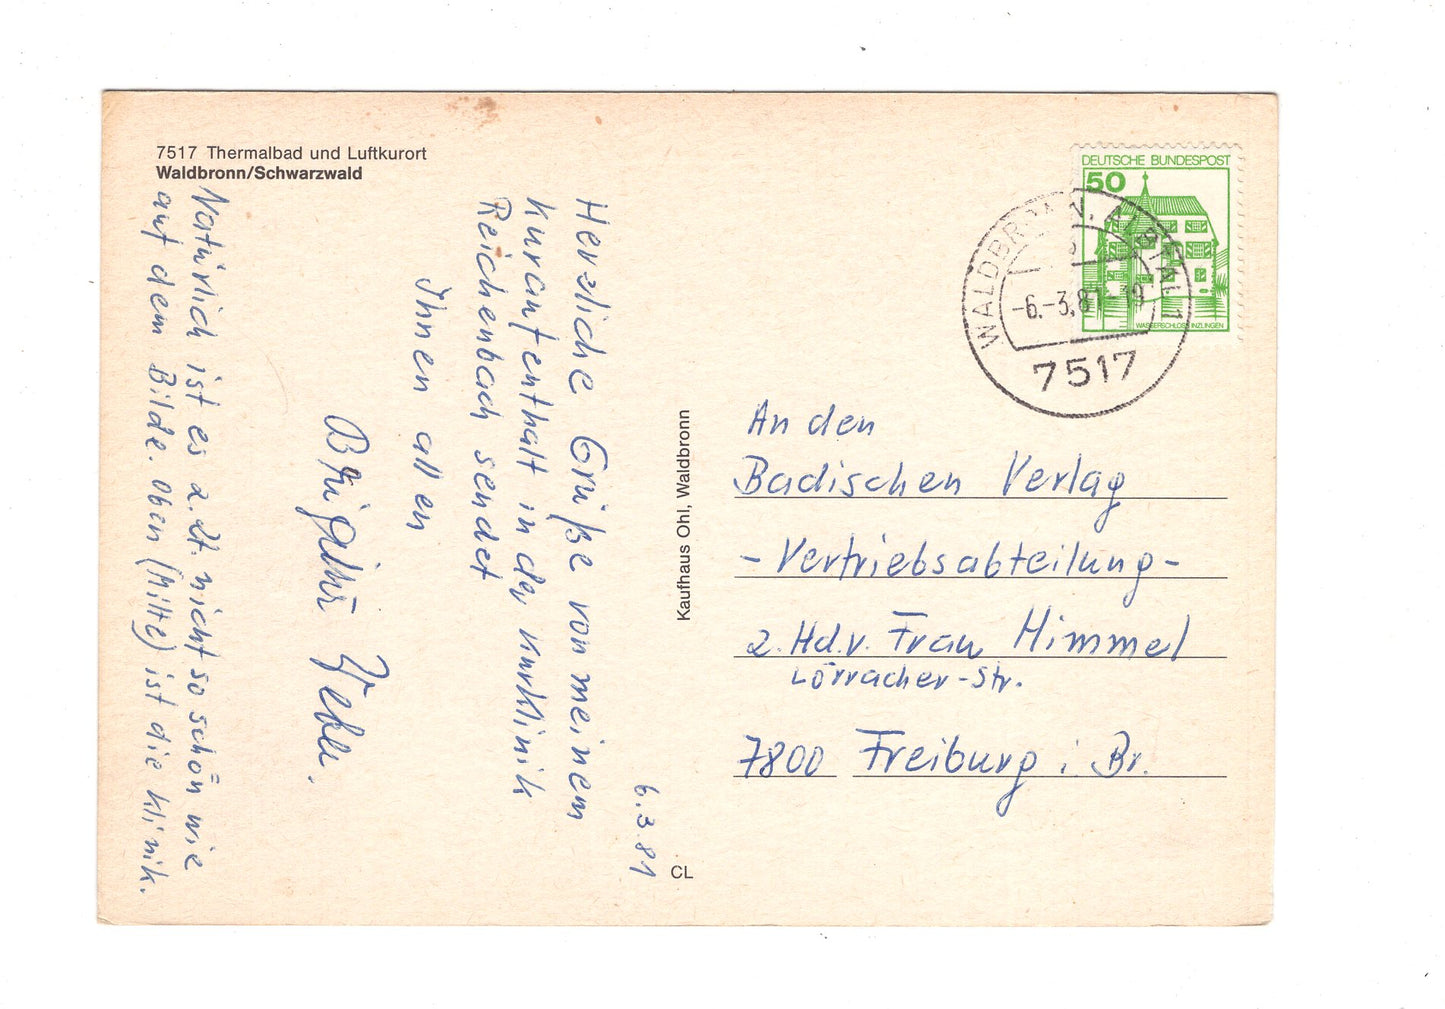 7517 Thermalbad und Luftkurort
Waldbronn/Schwarzwald
6.3.81
Herzliche Grüße von meinem
Kuraufenthalt in der Kurklinik
Reichenbach sendet
Ihnen allen
Weber.
Natürlich ist es z. Zt. nicht so schön wie
auf dem Bilde. Oben (Mitte) ist die Klinik.
Kaufhaus Ohl, Waldbronn
CL
DEUTSCHE BUNDESPOST
50
WASSERSCHLOSS INZLINGEN
WALDBRONN, ALBTAL 1
-6.-3.81-19
7517
An den
Badischen Verlag
- Vertriebsabteilung -
z. Hd. v. Frau Himmel
Lörracher-Str.
7800 Freiburg i. Br.